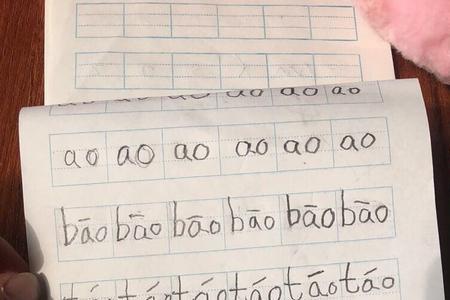 ao ao ao ao ao ao
ao ao ao ao ao ao
bāo bāo bāo bāo bāo bāo
táo táo táo táo táo táo